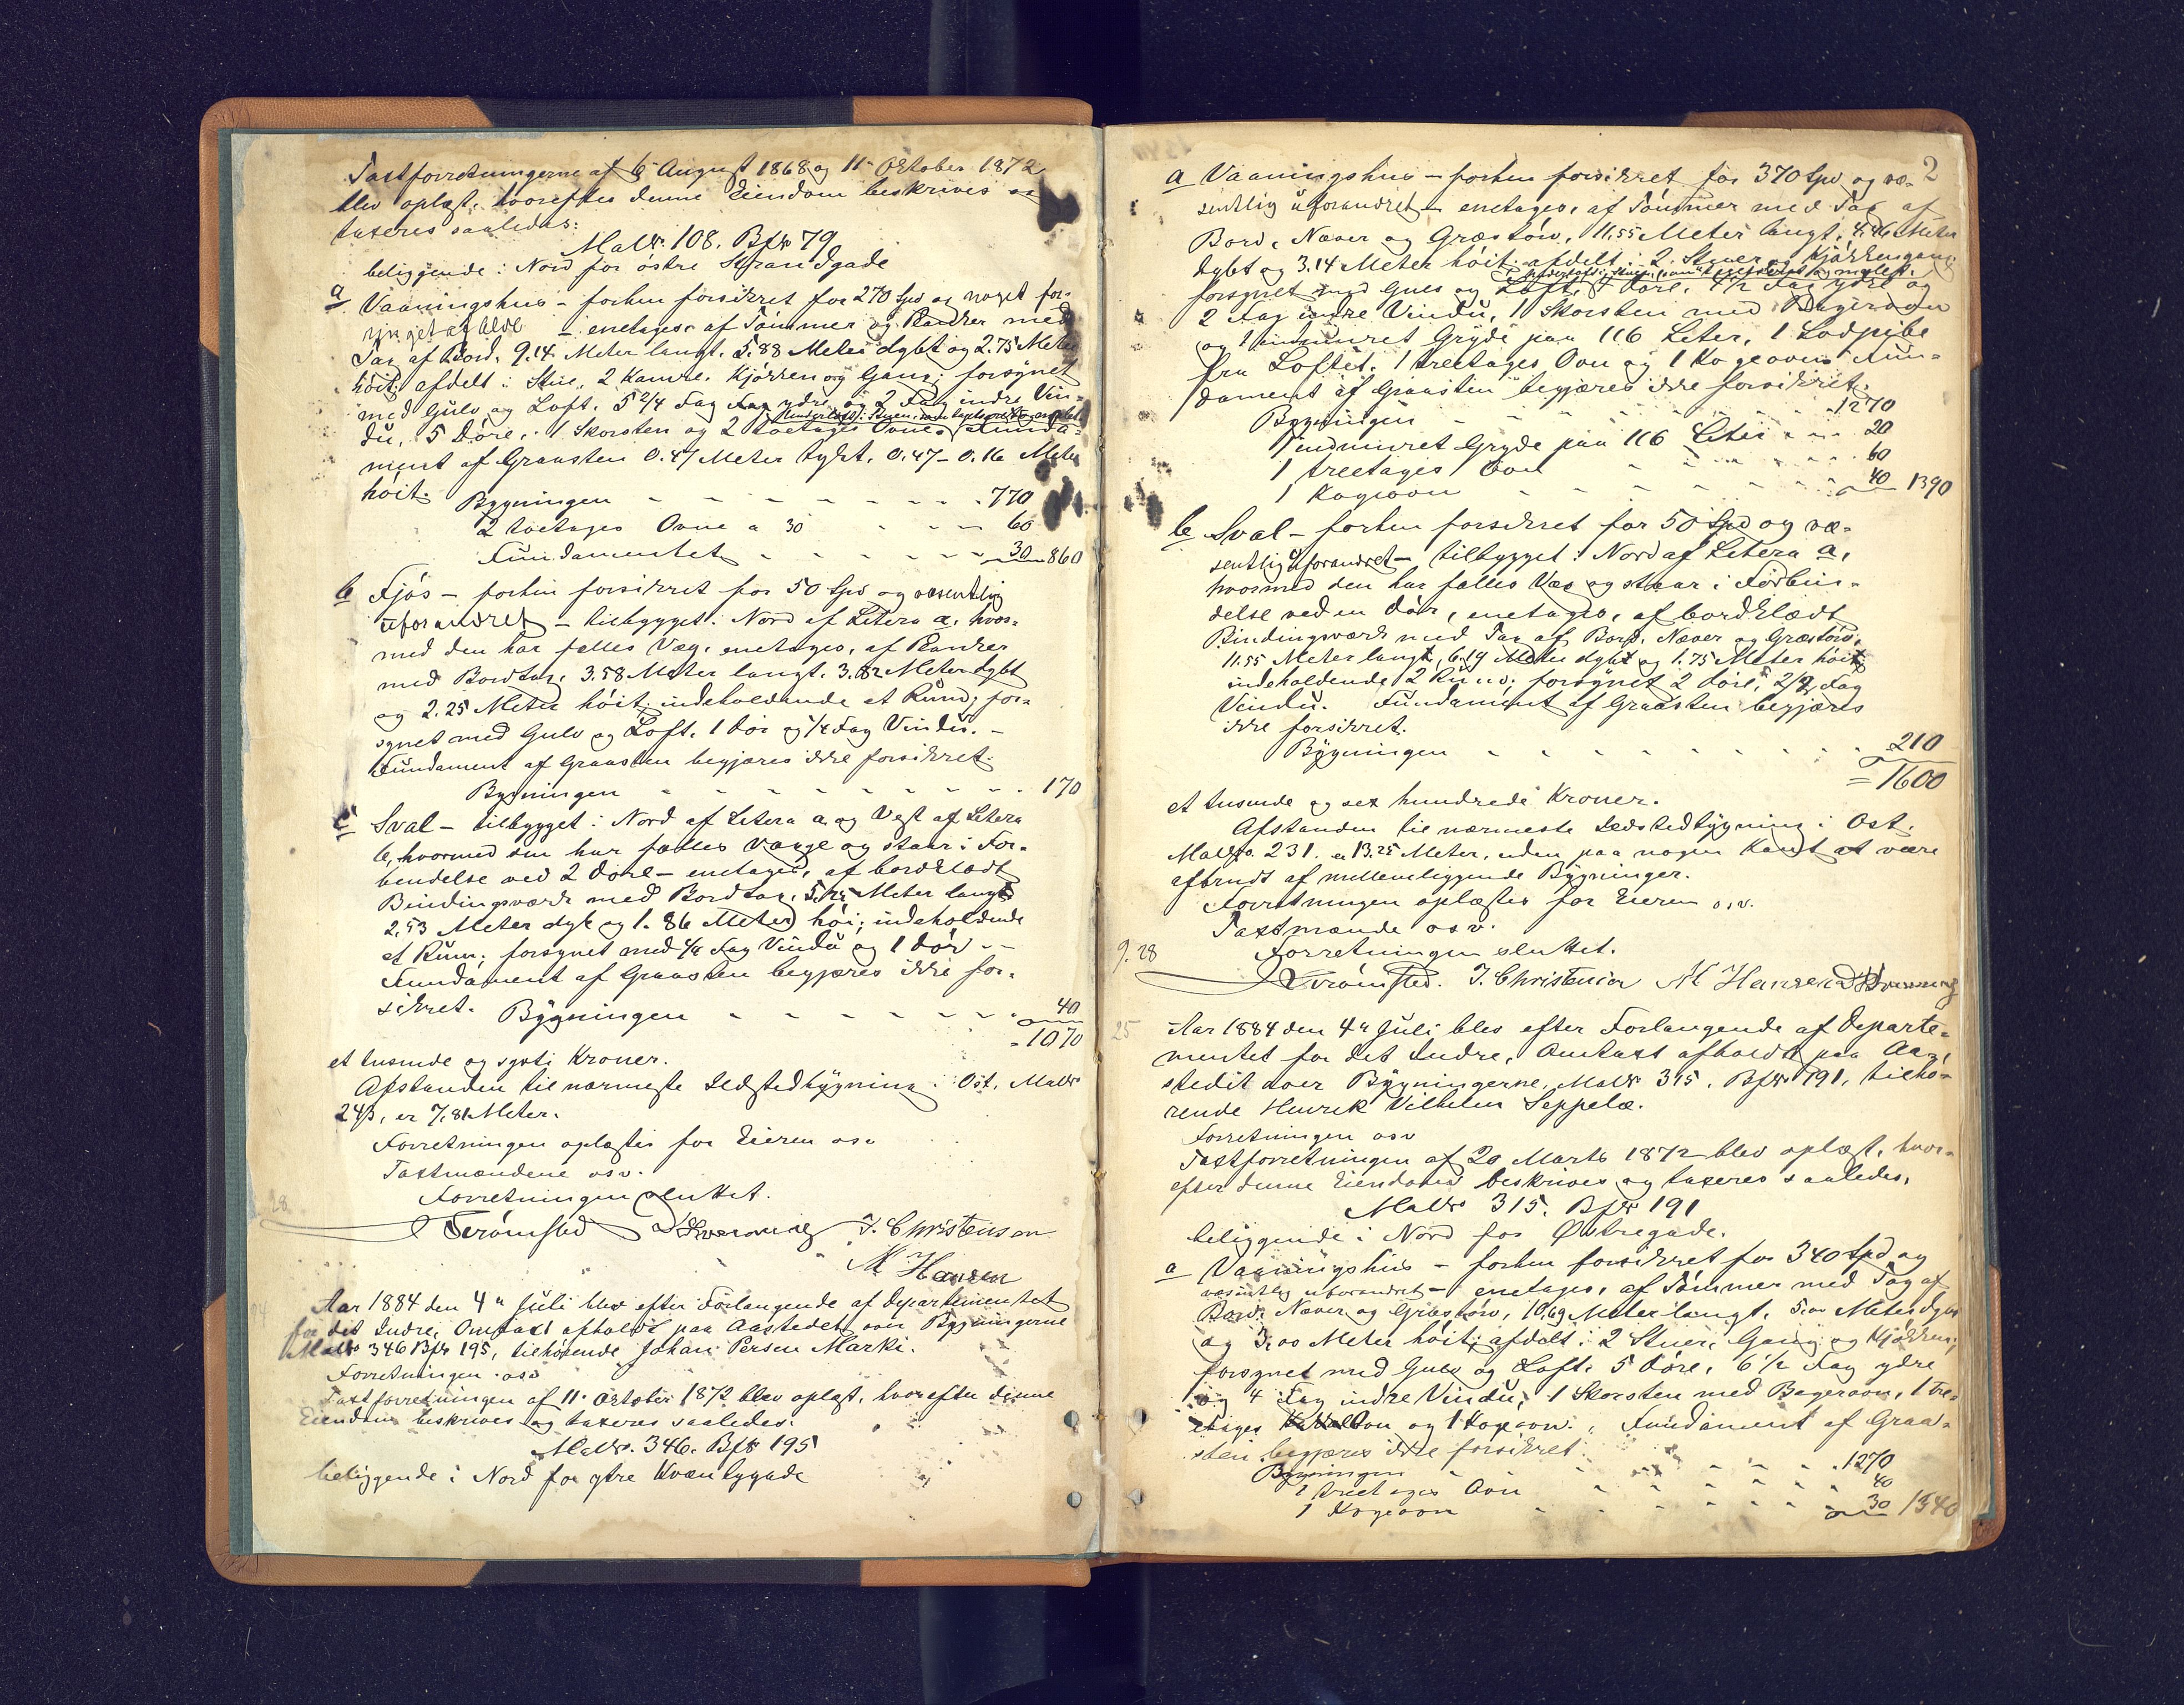 Taxtforretningerne af 6 August 1868 og 11 Oktober 1872
blev oplæst, hvorefter denne Eiendom beskrives og
taxeres saaledes:
Mall№ 108. Bf№ 79
beliggende i Nord for østre Strandgade
a Vaaningshus – forhen forsikret for 270 Spd og noget for-
– enetages af Tømmer og Planker med
Tag af Bord, 9.14 Meter langt, 5.88 Meter dybt og 2.75 Meter
höit; afdelt i Stue, 2 Kamre, Kjökken og Gang; forsynet
med Gulv og Loft, 5 2/4 Fag ydre og 2 Fag indre Vin-
du, 5 Döre, 1 Skorsten og 2 toetages Ovne. Funda-
ment af Graasten 0.47 Meter tykt, 0.47 – 0.16 Meter
höit.
Bygningen - - - 770
2 toetages Ovne a 30 - - - 60
Fundamentet - - - 30 860
b Fjös – forhen forsikret for 50 Spd og væsentlig
uforandret – tilbygget i Nord af Litera a, hvor-
med den har fælles Væg, enetages, af Planker
med Bordtag, 3.58 Meter langt, 3.82 Meter dybt
og 2.25 Meter höit; indeholdende et Rum; for-
synet med Gulv og Loft, 1 Dör og 1/4 Fag Vindu. –
Fundament af Graasten begjæres ikke forsikret.
Bygningen - - - 170
c Sval – tilbygget i Nord af Litera a og Vest af Litera
b, hvormed den har fælles Vægge og staar i For-
bendelse ved 2 Döre – enetages, af bordklædt
Bindingsværk med Bordtag, 5.25 Meter langt
2.53 Meter dyb og 1.86 Meter höi; indeholdende
et Rum; forsynet med 1/4 Fag Vindu og 1 Dör. –
Fundament af Graasten begjæres ikke for-
sikret. Bygningen - - - 40
= 1070
et tusende og sytti Kroner.
Afstanden til nærmeste Ildstedbygning i Ost, Mall№
243, er 7.81 Meter.
Forretningen oplæstes for Eieren osv
Taxtmændene osv.
Forretningen sluttet.
28
Strömsted J. Christensen
M Hansen
Aar 1884 den 4de Juli blev efter Forlangende af Departementet
for det Indre, Omtaxt afholdt paa Aastedet over Bygningerne
Mall№ 346 Bf№ 195, tilhörende Johan Persen Marki.
Forretningen osv
Taxtforretningen af 11 Oktober 1872 blev oplæst, hvorefter denne
Eiendom beskrives og taxeres saaledes:
Mall№. 346. Bf№ 195
beliggende i Nord for ytre Kvænbygade
2
a Vaaningshus – forhen forsikret for 370 Spd og væ-
sentlig uforandret – enetages, af Tömmer med Tag af
Bord, Næver og Græstörv, 11.55 Meter langt, 4.46 Meter
dybt og 3.14 Meter höit; afdelt i 2 Stuer og Kjökkengang
forsynet med Gulv og Loft, Döre, 4 1/2 Fag ydre og
2 Fag indre Vindu, 1 Skorsten med Bagerovn
og 1 indmuret Gryde paa 116 Liter, 1 Lodpibe
fra Loftet, 1 treetages Ovn og 1 Kogeovn. Fun-
dament af Graasten begjæres ikke forsikret.
Bygningen - - - 1270
1 indmuret Gryde paa 116 Liter - - - 20
1 treetages Ovn - - - 60
1 Kogeovn - - - 40 1390
b Sval – forhen forsikret for 50 Spd og væ-
sentlig uforandret – tilbygget i Nord af Litera a,
hvormed den har fælles Væg og staar i Forbin-
delse ved en Dör, enetages, af bordklædt
Bindingsværk med Tag af Bord, Næver og Græstörv,
11.55 Meter langt, 6.19 Meter dybt og 1.75 Meter höit;
indeholdende 2 Rum; forsynet 2 Döre, 2/4 Fag
Vindu. Fundament af Graasten begjæres
ikke forsikret.
Bygningen - - - 210
= 1600
et tusende og sex hundrede Kroner.
Afstanden til nærmeste Ildstedbygning i Ost,
Mall№. 231. er 13.25 Meter, uden paa nogen Kant at være
afbrudt af mellemliggende Bygninger.
Forretningen oplæstes for Eieren osv.
Taxtmænde osv.
9.28 Forretningen sluttet.
Strömsted. J. Christensen M Hansen
25 Aar 1884 den 4de Juli blev efter Forlangende af Departe-
mentet for det Indre, Omtaxt afholdt paa Aa-
stedet over Bygningerne, Mall№ 315. Bf№ 191, tilhö-
rende Henrik Vilhelm Seppelæ.
Forretningen osv
Taxtforretningen af 20 Marts 1872 blev oplæst, hvor-
efter denne Eiendom beskrives og taxeres saaledes,
Mall№ 315. Bf№ 191
beliggende i Nord for Østregade.
a Vaaningshus – forhen forsikret for 340 Spd og
væsentlig uforandret – enetages, af Tömmer med Tag af
Bord, Næver og Græstörv, 10.69 Meter langt, Meter dybt
og 3.00 Meter höit; afdelt i 2 Stuer, Gang og Kjökken;
forsynet med Gulv og Loft, 5 Döre, 6 1/2 Fag ydre
og 4 Fag indre Vindu, 1 Skorsten med Bagerovn, 1 tre-
etages Ovn og 1 Kogeovn. Fundament af Graa-
sten begjæres ikke forsikret.
Bygningen - - - 1270
1 treetages Ovn - - - 40
1 Kogeovn - - - 30 1340